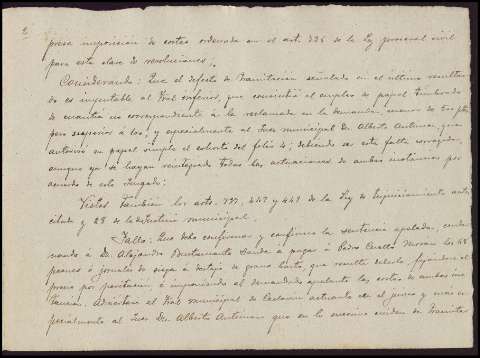 2
presa imposición de costas ordenada en el art. 736 de la Ley procesal civil
para esta clase de resoluciones.
Considerando: Que el defecto de tramitación señalado en el último resultan
do es imputable al Tral inferior, que consintió el empleo de papel timbrado
de cuantía no correspondiente á la reclamada en la demanda,
pero superior á los, y especialmente al Juez municipal Dn. Alberto Antunez que
autorizó en papel simple el exhorto del folio 4; debiendo ser esta falta corregida,
aunque ya se hayan reintegrado todas las actuaciones de ambas instancias por
acuerdo de este Juzgado:
Vistos también los arts. 737, 447 y 449 de la Ley de Enjuiciamiento ante
citada y 28 de la Justicia municipal.
Fallo: Que debo confirmar y confirmo la sentencia apelada, conde
nando á Dn. Alejandro Bustamante á pagar á Pedro Morán los 48
peones ó jornales de siega á destajo de grano hasta, que resulta deberle, fijándose el
precio por peritación é imponiendo al demandado apelante las costas de ambas ins
tancias. Adviértase al Tral municipal de actuante en el juicio y más es
pecialmente al Juez Dn. Alberto Antunez que en lo sucesivo cuiden de tramitar